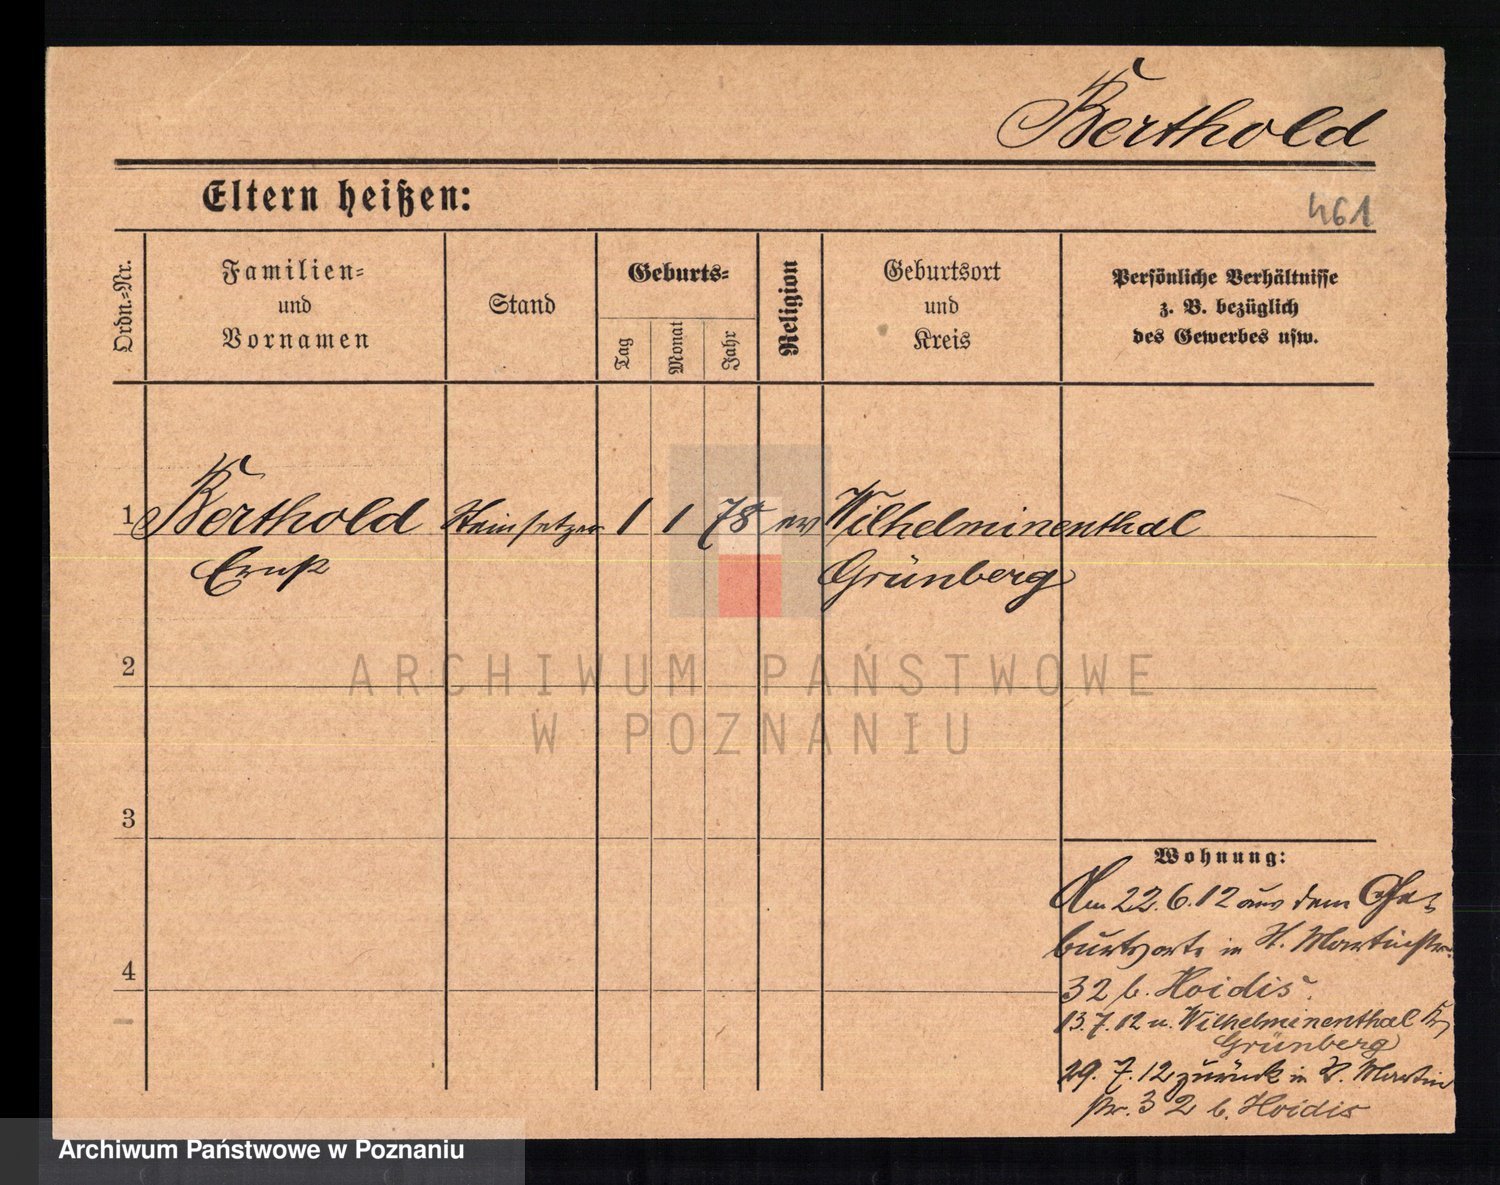 Berthold
Eltern heißen:
461
Ordn.-Nr.
Familien-
und
Vornamen
Stand
Geburts-
Tag
Monat
Jahr
Religion
Geburtsort
und
Kreis
Persönliche Verhältnisse
z. B. bezüglich
des Gewerbes usw.
1 Berthold Steinsetzer 1 1 78 ev Wilhelminenthal
Ernst Grünberg
2
ARCHIWUM PAŃSTWOWE
W POZNANIU
3
Wohnung:
Am 22.6.12 aus dem Ge-
burtsorte in St. Martinstr.
4
32 b. Hoidis.
13.7.12 n. Wilhelminenthal Kr
Grünberg
29.7.12 zurück in St. Martin
str. 32 b. Hoidis
Archiwum Państwowe w Poznaniu